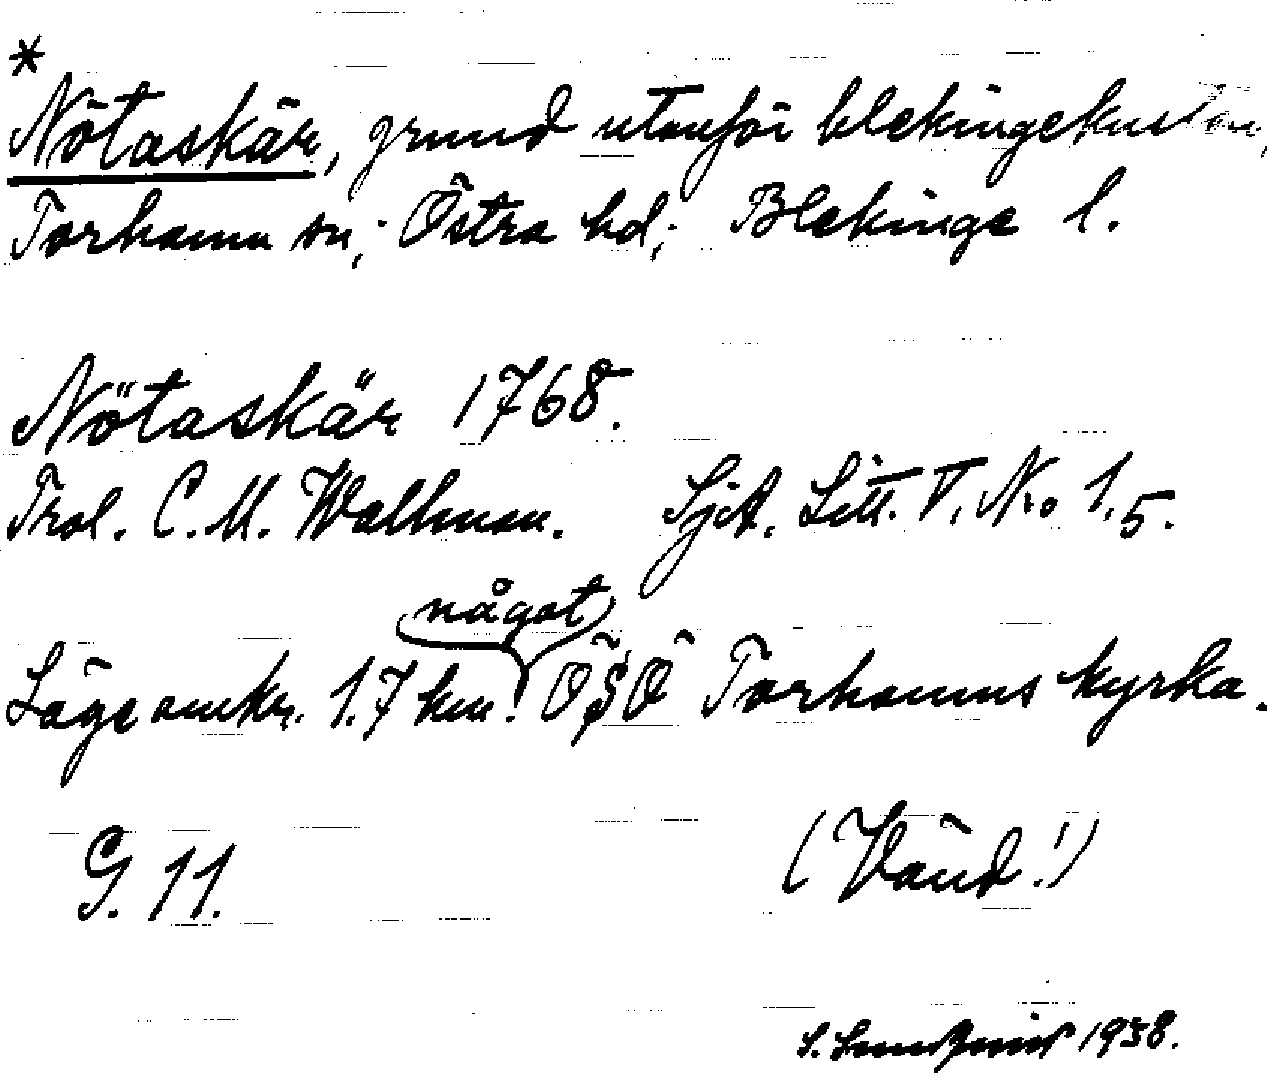 *
Nötaskär, grund utanför blekingekusten,
Torhamn sn; Östra hd; Blekinge l.
Nötaskär 1768.
Trol. C. M. Wallman. SjöA. Litt. V. No 1.5.
något
Läge omkr. 1.7 km. OSO Torhamns kyrka.
G. 11.
(Vänd!)
S. 1938.